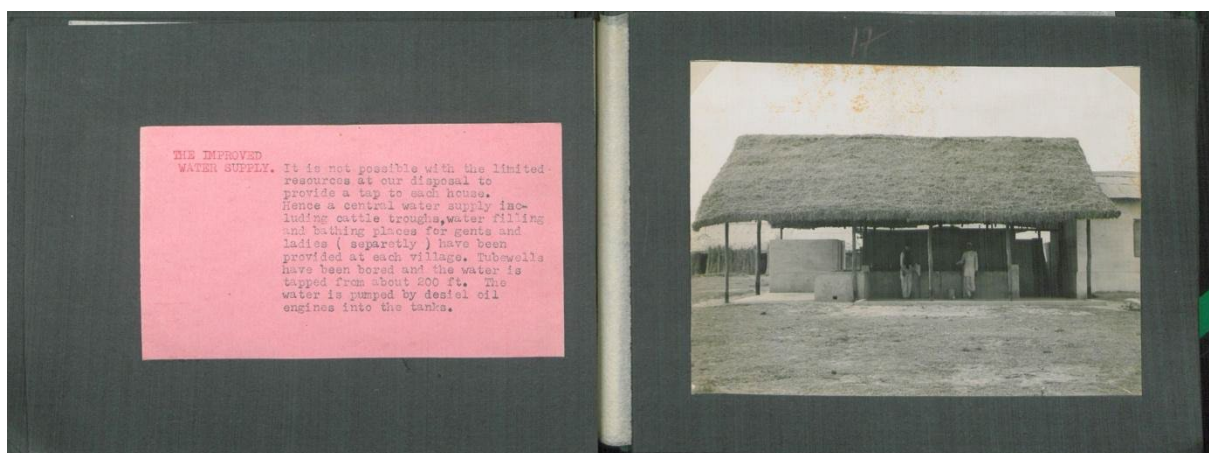 THE IMPROVED
WATER SUPPLY. It is not possible with the limited
resources at our disposal to
provide a tap to each house.
Hence a central water supply inc-
luding cattle troughs,water filling
and bathing places for gents and
ladies ( separetly ) have been
provided at each village. Tubewells
have been bored and the water is
tapped from about 200 ft. The
water is pumped by desiel oil
engines into the tanks.
17